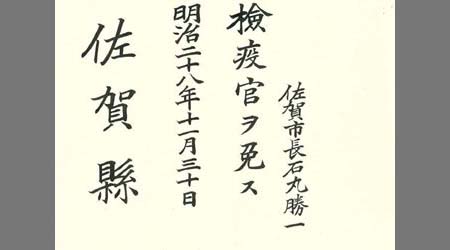 佐賀市長石丸勝一
檢疫官ヲ免ス
明治二十八年十一月三十日
佐賀縣